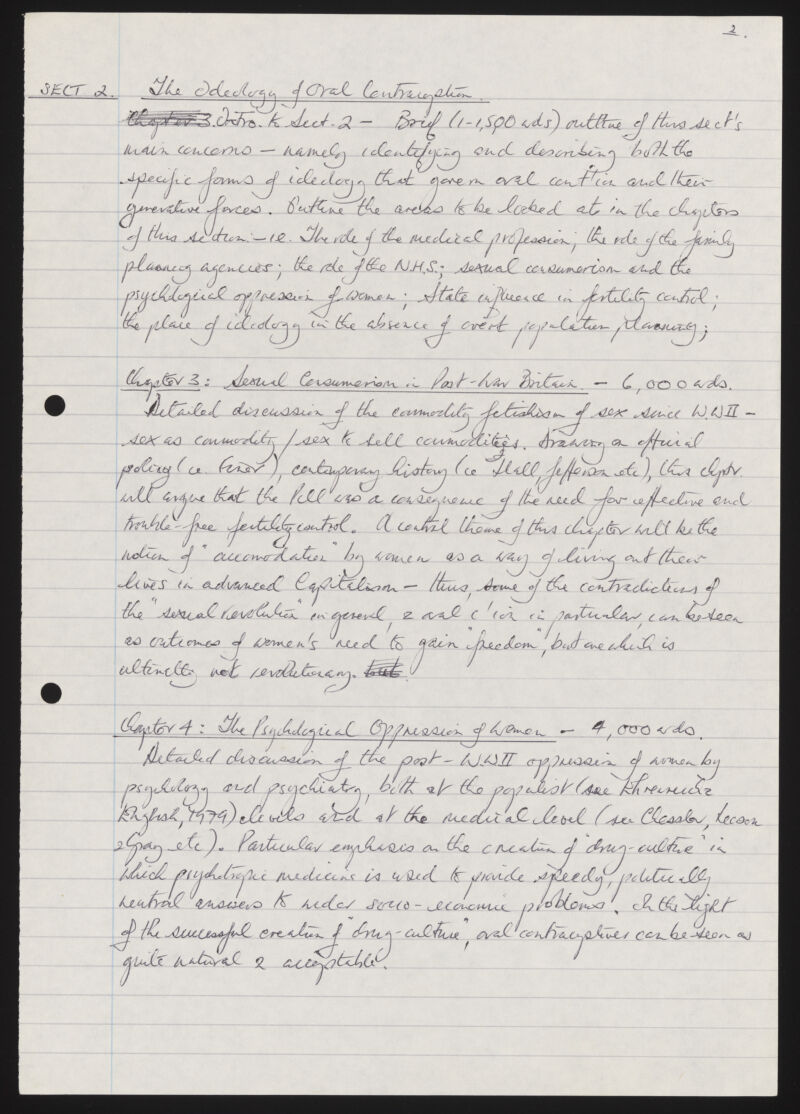 2.
SECT 2. The Ideology of Oral Contraception.
Chapter 3. Intro. to Sect. 2 – Brief (1-1,500 wds) outline of this sect's
main concerns – namely identifying and describing both the
specific forms of ideology that govern oral cont'ion and their
generative forces. Outline the areas to be looked at in the chapters
of this section – ie. The role of the medical profession; the role of the family
planning agencies; the role of the N.H.S.; sexual consumerism and the
psychlogical oppression of women; State influence in fertility control;
the place of ideology in the absence of overt population planning;
Chapter 3: Sexual Consumerism in Post-War Britain. – 6,000 wds.
Detailed discussion of the commodity fetishism of sex since W.W.II –
sex as commodity / sex to sell commodities. Drawing on official
policy (ie. ), contemporary history (ie Hall, Jefferson etc), this chptr.
will argue that the Pill was a consequence of the need for effective and
trouble-free fertility control. A central theme of this chapter will be the
notion of "accomodation" by women as a way of living out their
lives in advanced Capitalism – thus, some of the contradictions of
the "sexual revolution" in general, & oral c'ion in particular, can be seen
as outcomes of women's need to gain "freedom", but one which is
ultimately not revolutionary. but.
Chapter 4: The Psychological Oppression of Women – 4,000 wds.
Detailed discussion of the post-W.W.II oppression of women by
psychology and psychiatry, both at the populist (see Ehrenreich &
English, 1979) levels and at the medical level (see Chessler, Leeson
& Gray etc). Particular emphasis on the creation of "drug-culture" in
which psychotropic medicine is used to provide speedy, politically
neutral answers to wider socio-economic problems. In the light
of the successful creation of "drug-culture", oral contraceptives can be seen as
quite natural & acceptable.